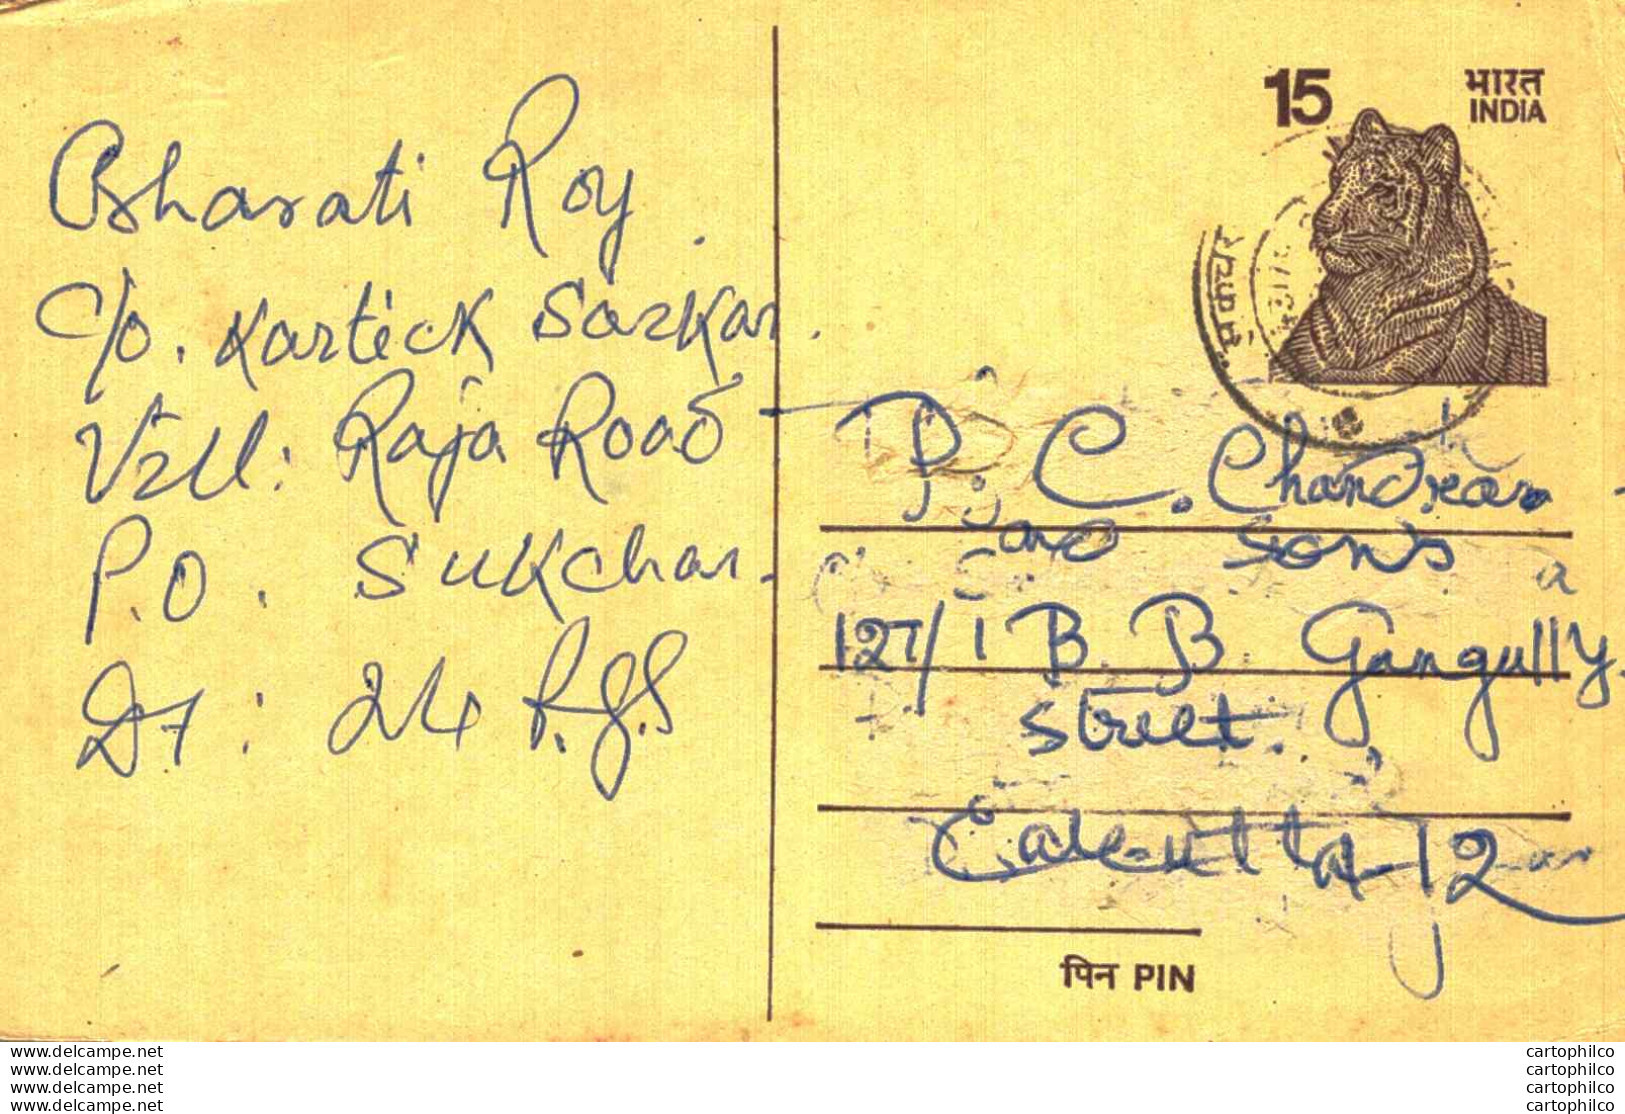 Bharati Roy.
C/o. Kartick Sarkar.
Vill: Raja Road
P.O. Sukchar.
Dt: 24 P.g.S
15
भारत
INDIA
P. C. Chandra
and Sons
127/1 B. B. Gangully.
Street.
Calcutta-12
पिन PIN
www.delcampe.net
www.delcampe.net
www.delcampe.net
www.delcampe.net
cartophilco
cartophilco
cartophilco
cartophilco